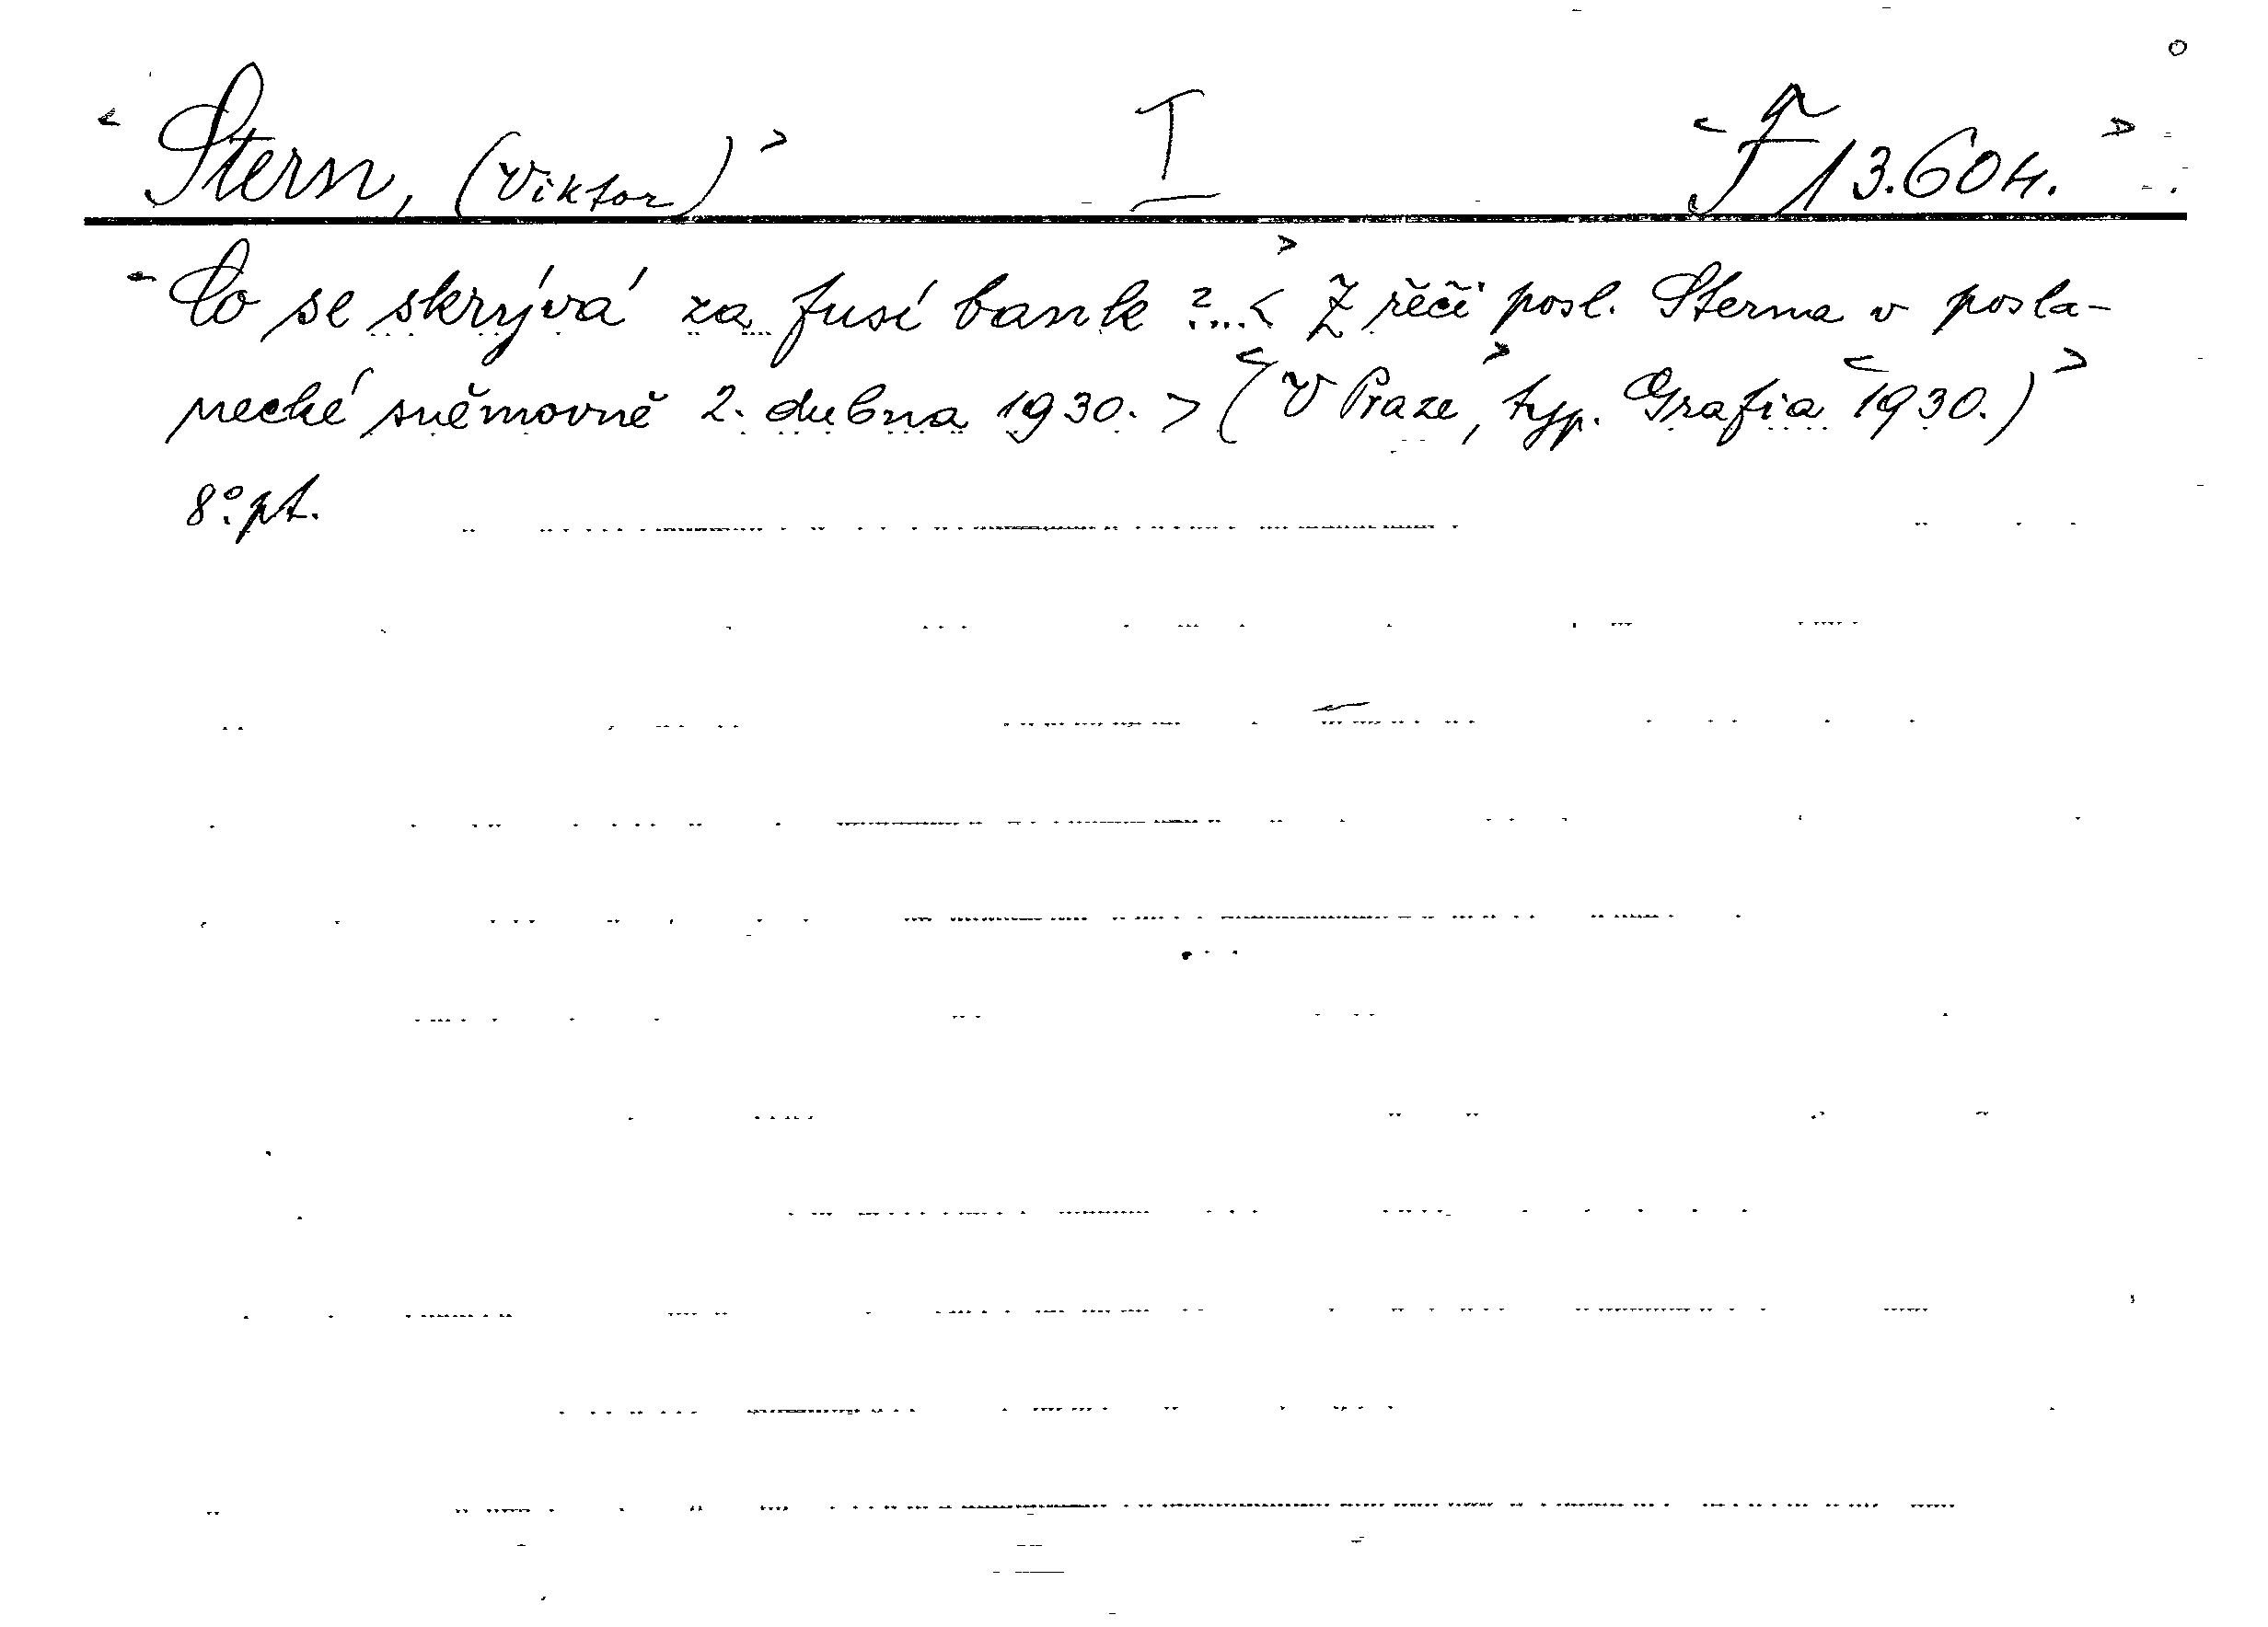 < Stern, (Viktor) > I < F 13.604. >
< Co se skrývá za fusí bank ?... > < Z řěči posl. Sterna v posla-
necké sněmovně 2. dubna 1930. > < (V Praze, > typ. Grafia < 1930.) >
8°. pt.